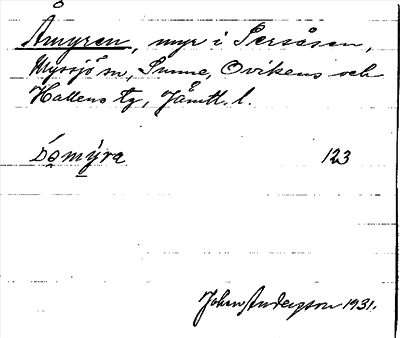 Åmyren, myr i Persåsen,
Myssjö sn, Sunne, Ovikens och
Hallens tg, Jämtl. l.
123
John Anderzson 1931.